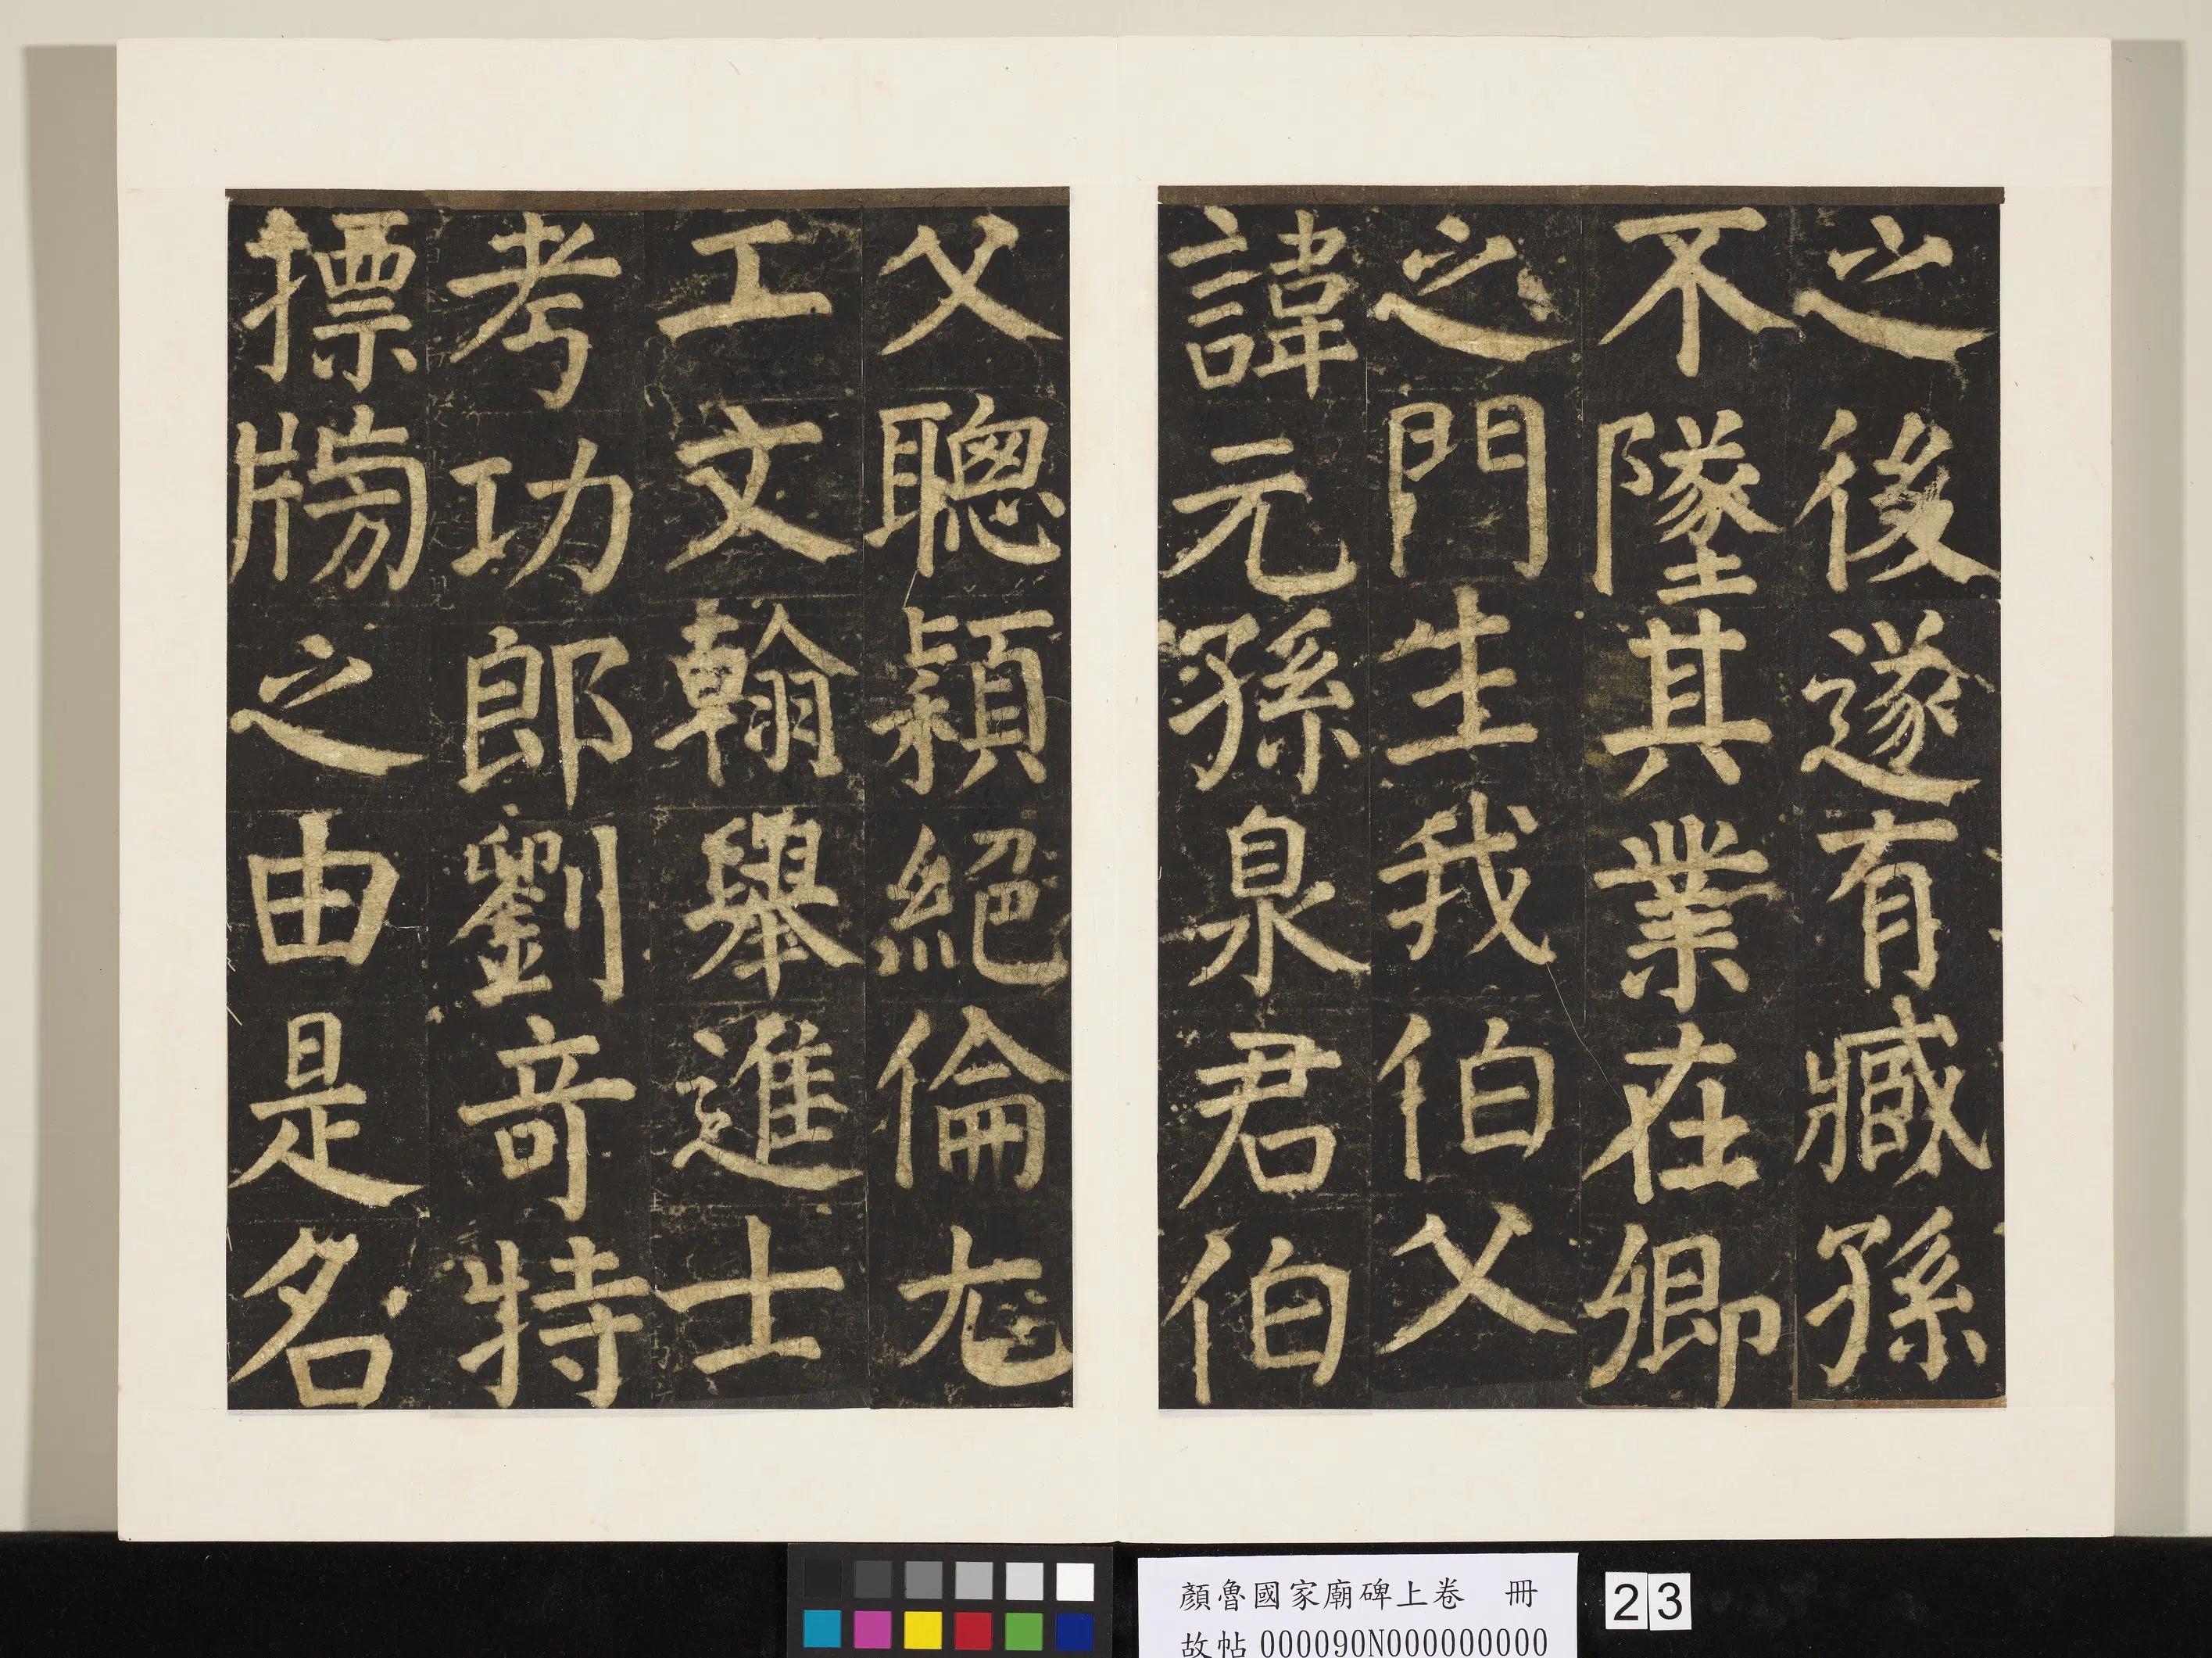 之後遂有臧孫
不墜其業在卿
之門生我伯父
諱元孫泉君伯
父聰穎絕倫尤
工文翰舉進士
考功郎劉竒特
摽牓之由是名
顏魯國家廟碑上卷 冊
故帖000090N000000000
23